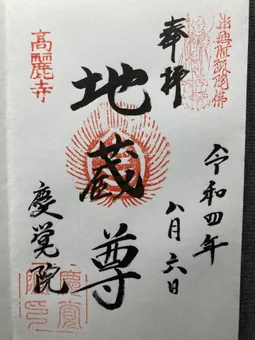 奉拝
令和四年
八月六日
地蔵尊
高麗寺
慶覚院
慶覺
院印